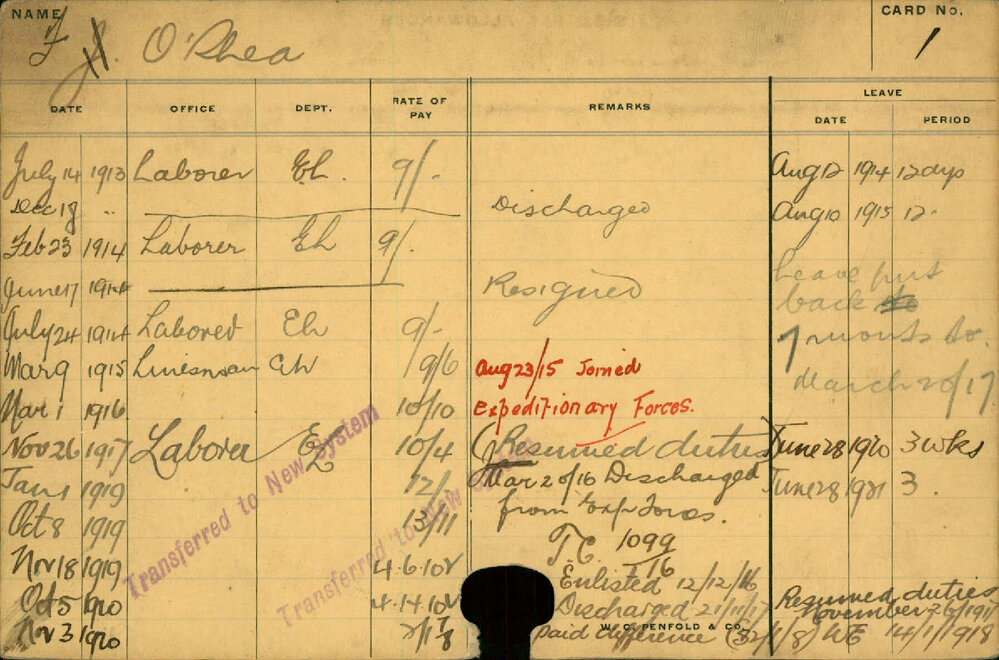 NAME
CARD No.
F O'Shea
1
DATE OFFICE DEPT. RATE OF PAY REMARKS LEAVE
DATE PERIOD
July 14 1913 Laborer EL. 9/- Aug 12 1914 12 days
Dec 18 " Discharged Aug 10 1915 12.
Feb 23 1914 Laborer EL 9/-
June 17 1914 Resigned Leave put
back to
July 24 1914 Laborer EL 9/- 7 months to.
Mar 9 1915 Linesman EL 9/6 Aug 23/15 Joined March 20/17
Mar 1 1916 10/10 Expeditionary Forces.
Nov 26 1917 Laborer EL 10/4 Resumed duties June 28 1920 3 wks
Jan 1 1919 12/- Mar 20/16 Discharged June 28 1921 3.
Oct 8 1919 13/11 from Exp Forces.
T.C. 1099/16
Nov 18 1919 4.6.10 Enlisted 12/12/16
Oct 5 1920 4.14.10 Discharged 21/11/17 Resumed duties
November 26/1917
Nov 3 1920 paid difference WE 14/1/1918
W. C. PENFOLD & CO.
Transferred to New System
Transferred to New